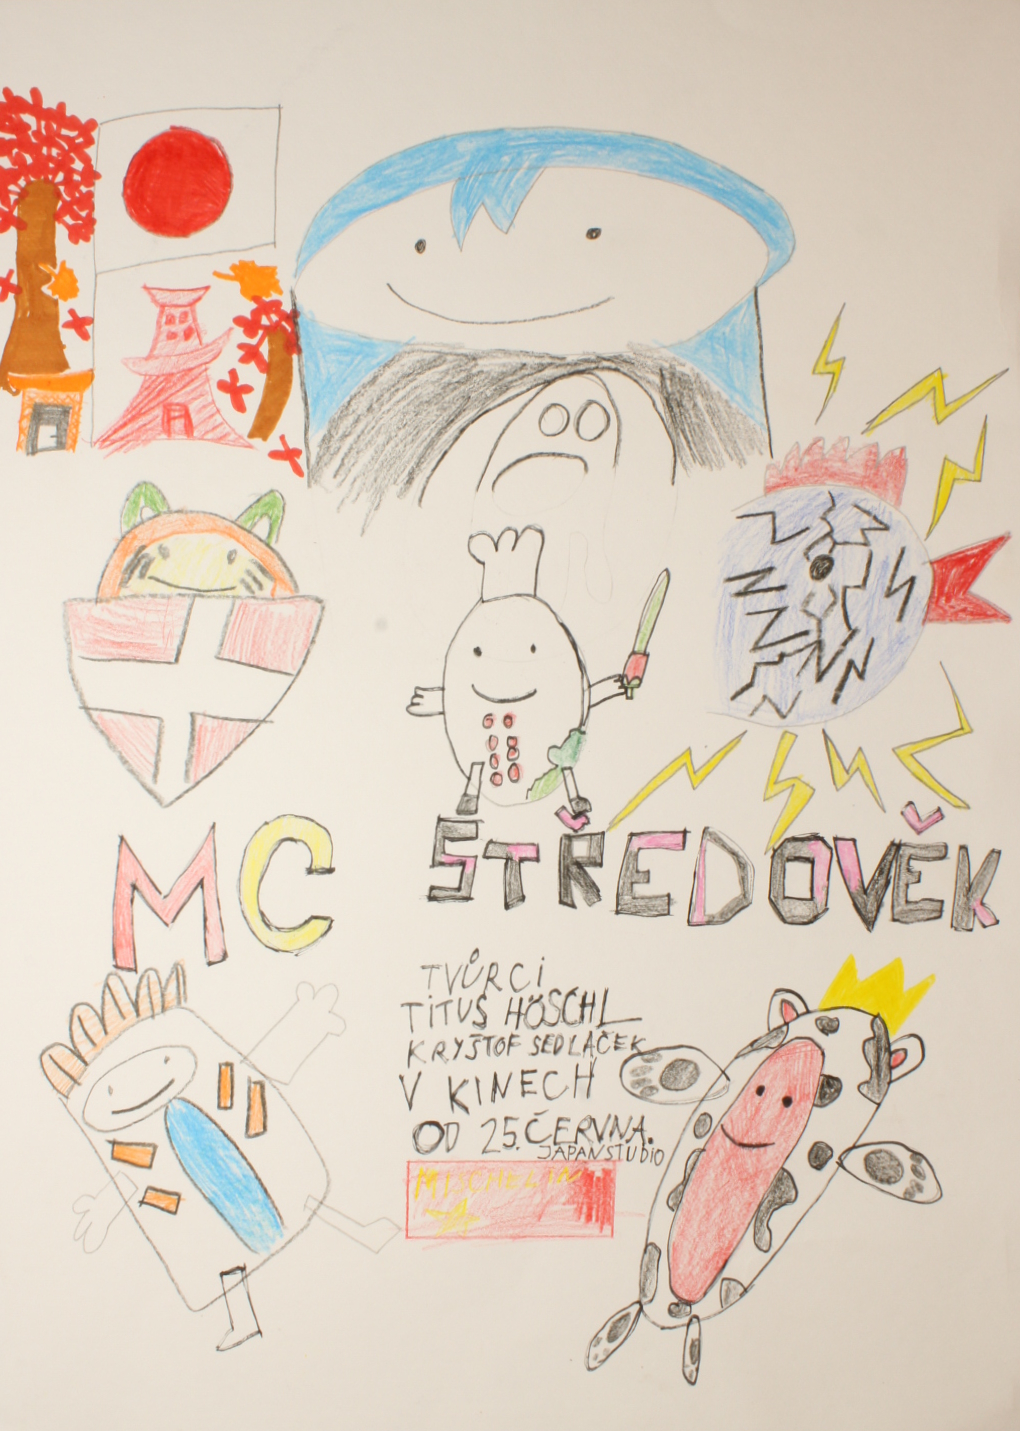 MC STŘEDOVĚK
TVŮRCI
TITUS HÖSCHL
KRYŠTOF SEDLÁČEK
V KINECH
OD 25. ČERVNA.
JAPANSTUDIO
MICHELIN